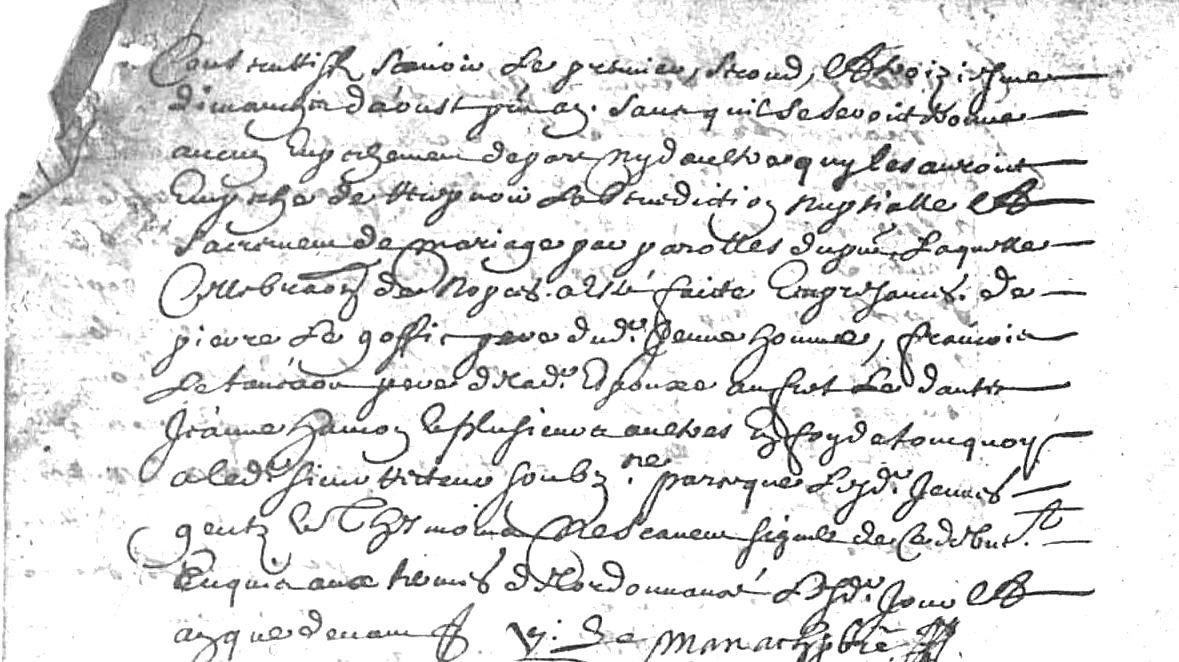 Consecutiffz scavoir le premier, second, et troiziesme
dimanche d'aoust p̃nt an. sans quil se seroit donné
aucun empeschement de part ny daultre quy les auroint
empesché de recepvoir la benediction nuptialle et
sacrement de mariage par parolles du pñt. Laquelle
celebraon̄ de nopces. a esté faicte en presances. de
pierre Le goffic pere dud. Jeune homme, francois
pere de lad. Espouze
Jeanne hamon et plusieurs aultres En foy de tout quoy
a led. sieur Recteur soubzne. par ce que lesd. Jeunes
gentz et Thesmoins Ne scavent signer de ce debuet.
Enquis aux termes de l'ordonnance Lesd. Jour et
an que devant y. Le Manach pbre